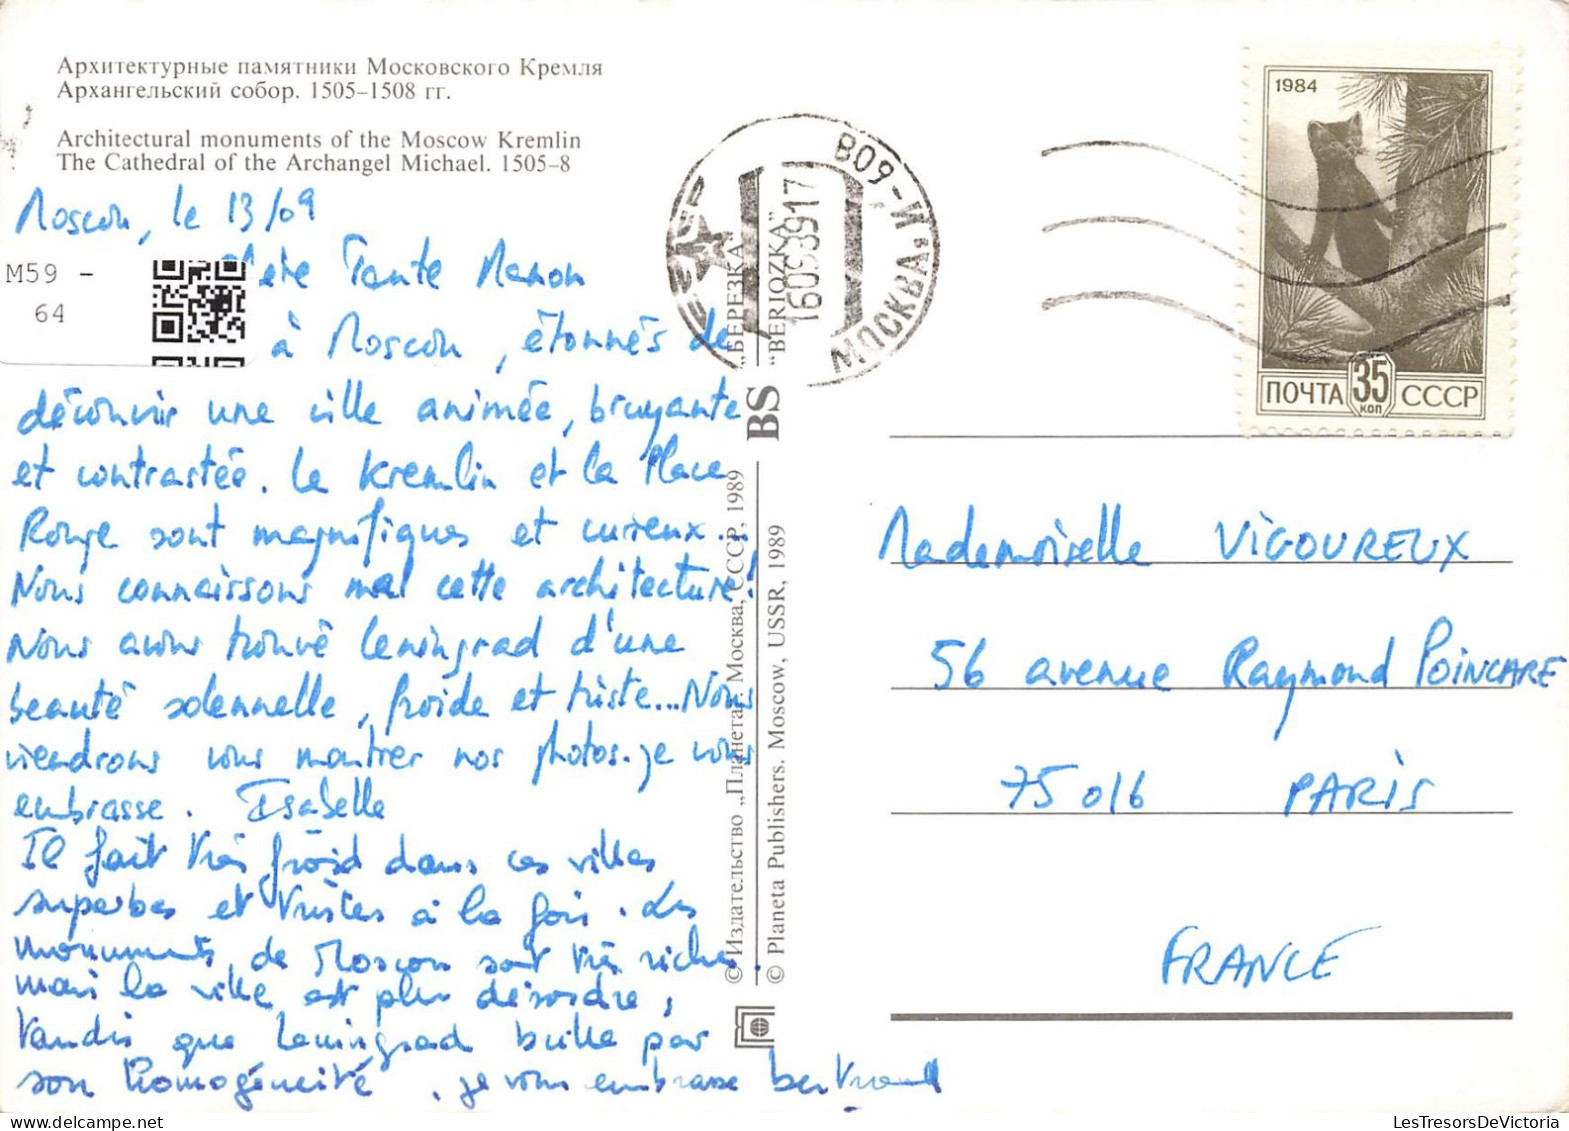 Архитектурные памятники Московского Кремля
Архангельский собор. 1505–1508 гг.
Architectural monuments of the Moscow Kremlin
The Cathedral of the Archangel Michael. 1505–8
Moscou, le 13/09
M59 -
64
Tante Manon
à Moscou, étonnés de
découvrir une ville animée, bruyante
et contrastée. Le Kremlin et la Place
Rouge sont magnifiques et curieux...
Nous connaissons mal cette architecture!
Nous avons trouvé Leningrad d'une
beauté solennelle, froide et triste... Nous
viendrons vous montrer nos photos. je vous
embrasse. Isabelle
Il fait très froid dans ces villes
superbes et tristes à la fois. Les
monuments de Moscou sont très riches
mais la ville est plus désordre,
tandis que Leningrad brille par
son homogénéité. je vous embrasse bertrand
© Издательство „Планета“. Москва, СССР, 1989
© Planeta Publishers. Moscow, USSR, 1989
BS „БЕРЕЗКА“
“BERIOZKA”
МОСКВА, И-609
16098917
1984
ПОЧТА 35 КОП СССР
Mademoiselle VIGOUREUX
56 avenue Raymond POINCARE
75016 PARIS
FRANCE
LesTresorsDeVictoria.com